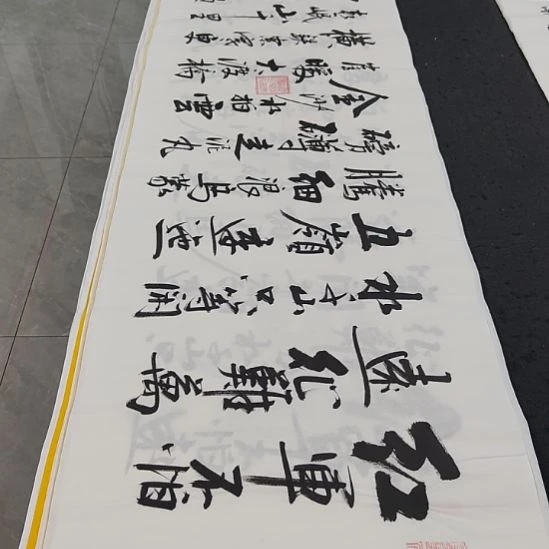 红軍不怕
遠征難萬
水千山只等閒
五嶺逶迤
騰細浪烏蒙
磅礴走泥丸
金沙水拍雲
崖暖大渡橋
横鐵索寒更
喜岷山千里